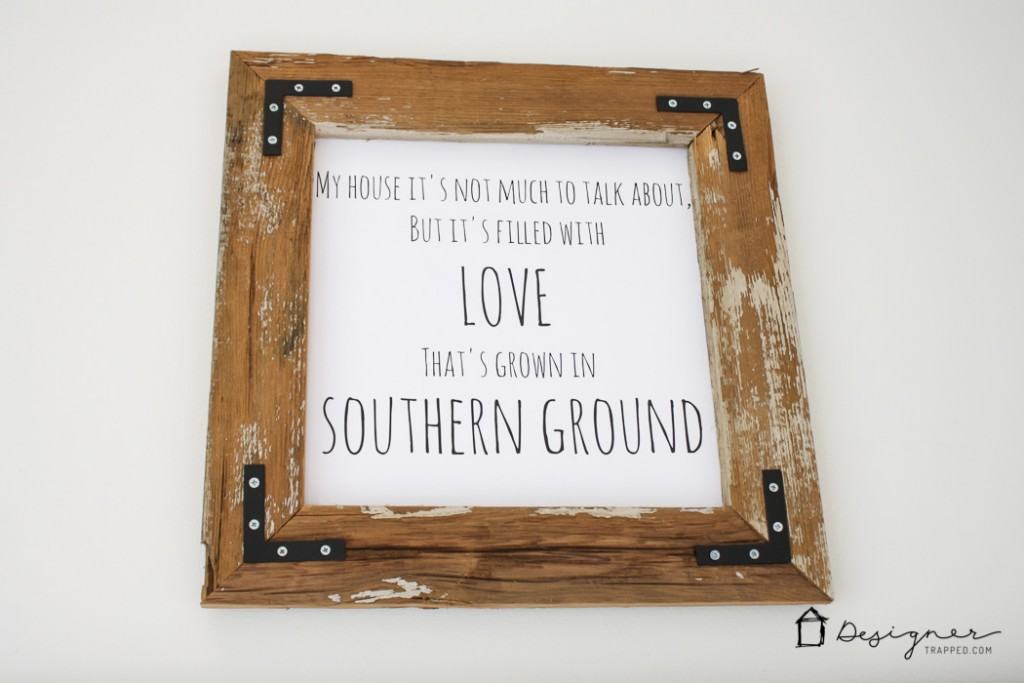 My house it's not much to talk about,
But it's filled with
LOVE
That's grown in
SOUTHERN GROUND
Designer
TRAPPED.COM